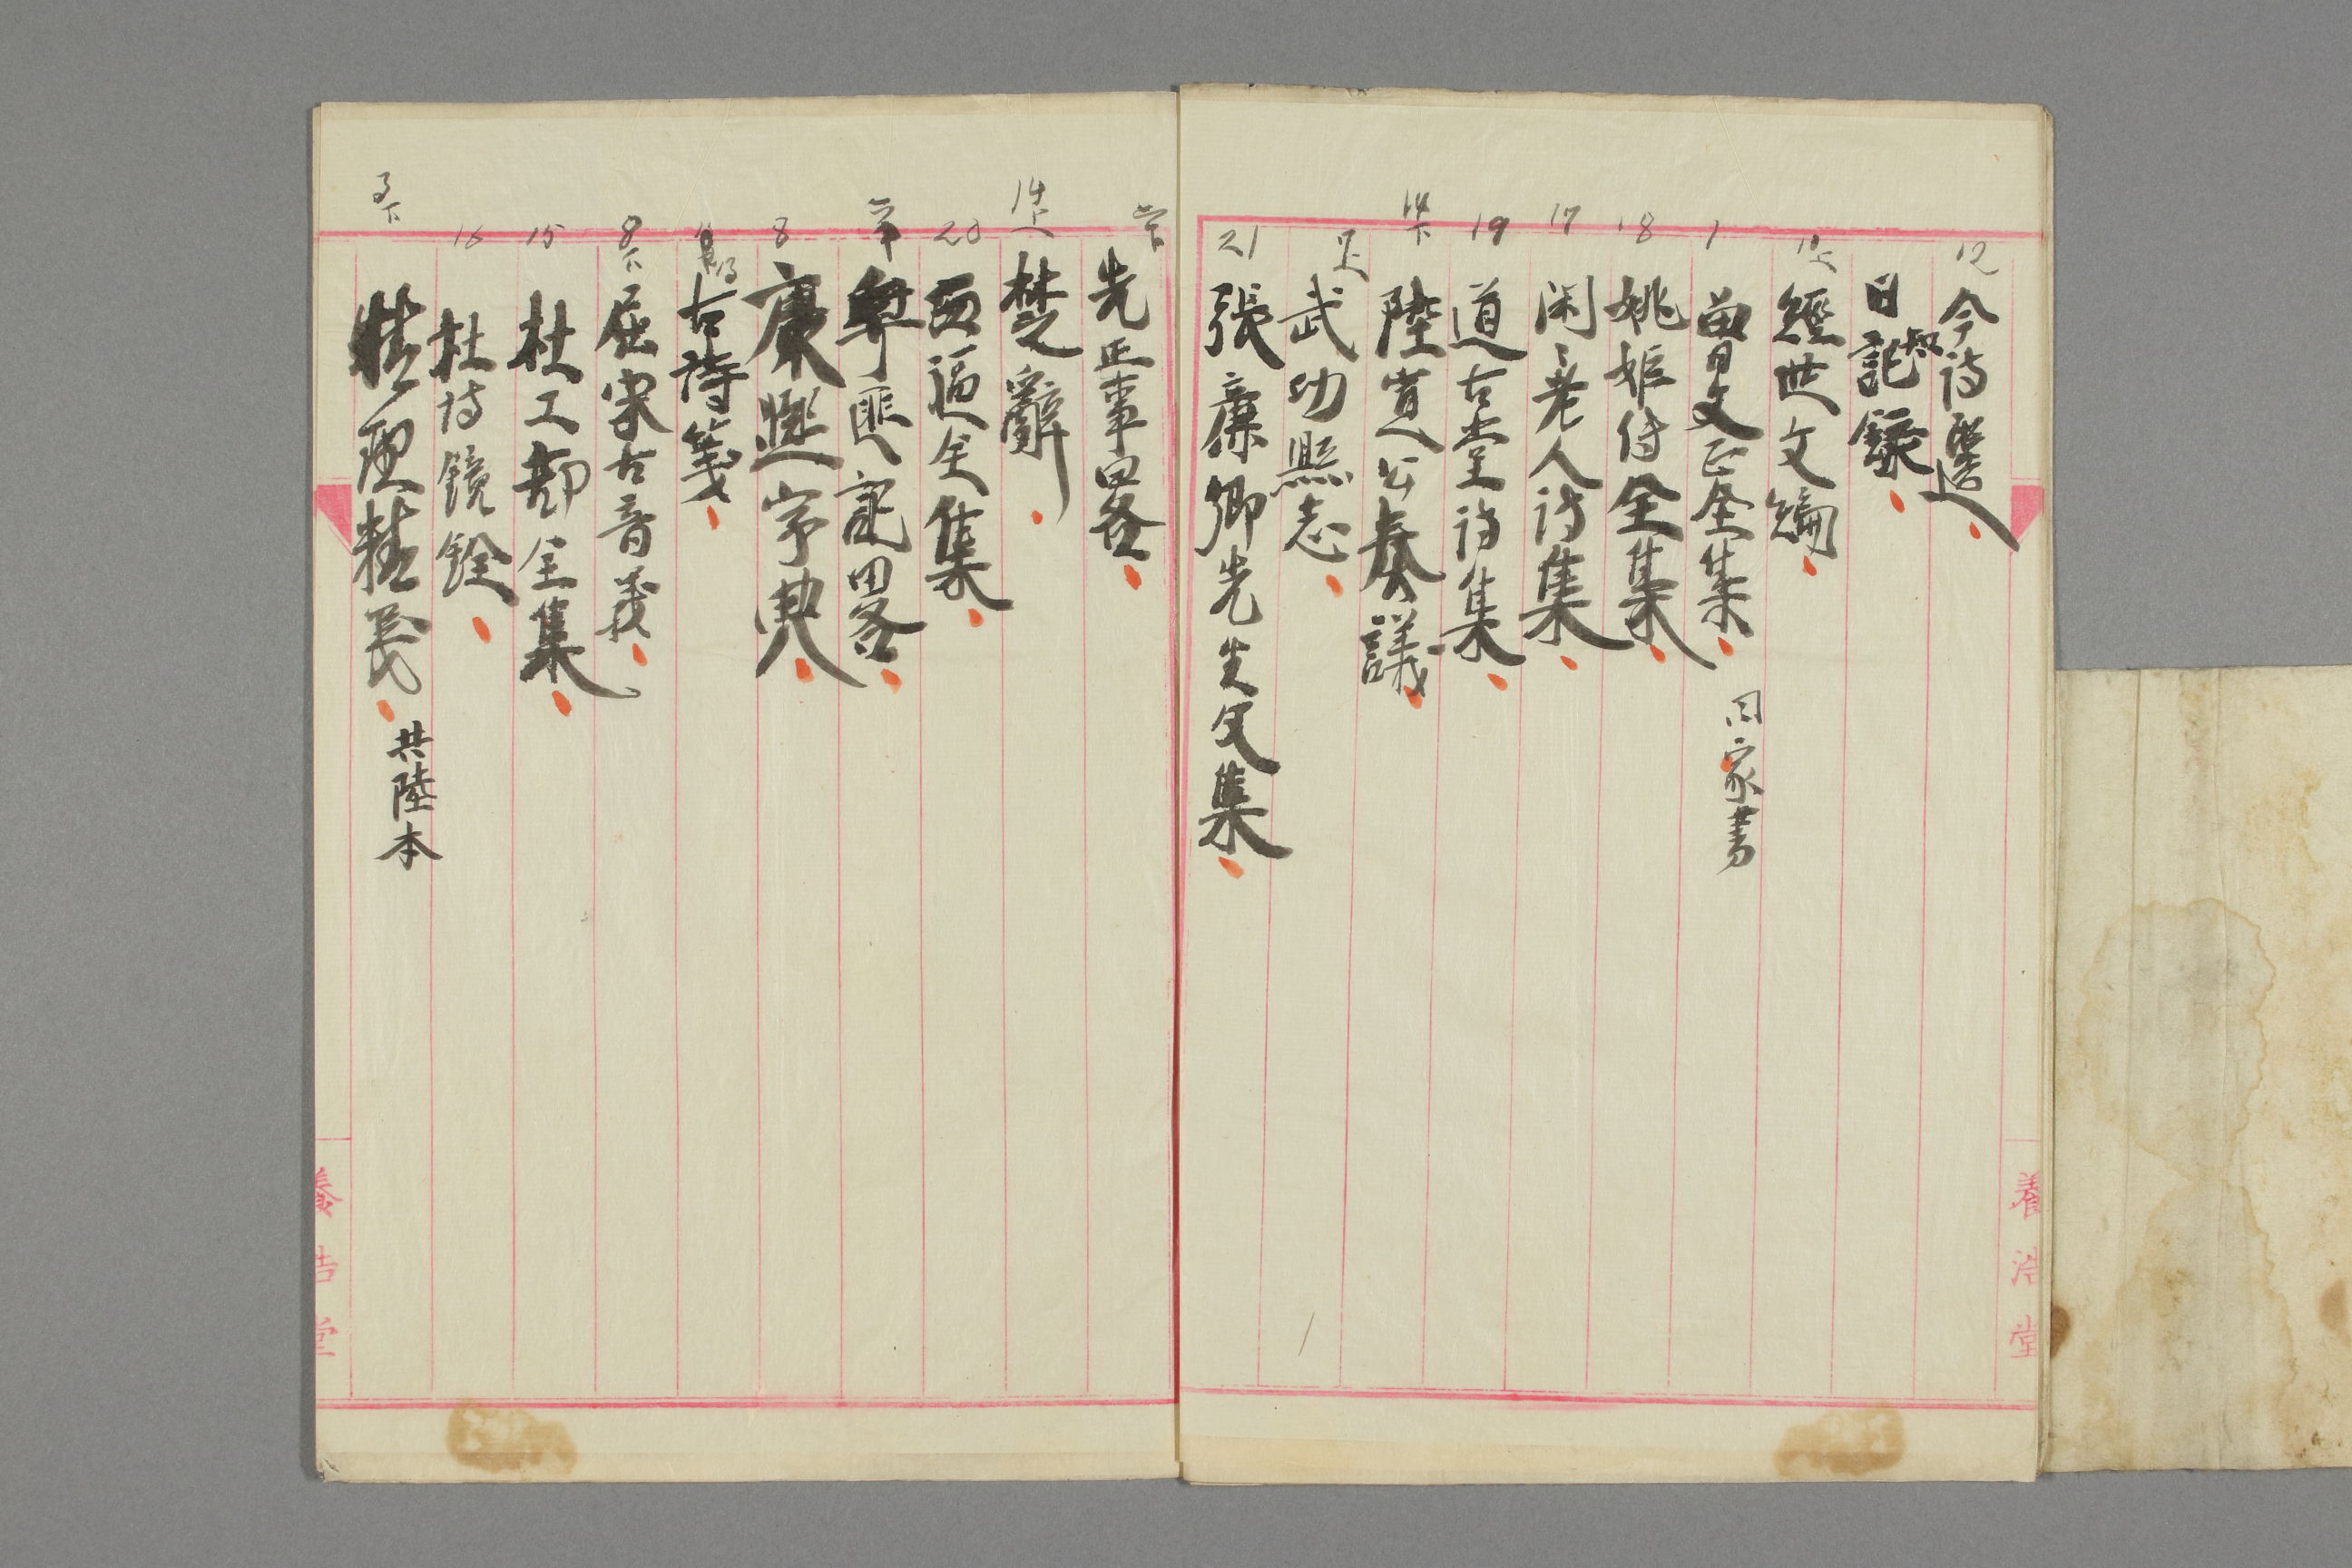 12
今詩選
日知記錄
經世文編
1
曾文正全集 同家書
18
姚姬传全集
17
閑〻老人詩集
19
道古堂詩集
陸宣公奏議
武功縣志
21
張廉卿先生文集
養浩堂
先正事畧
楚辭
20
西逼全集
粤匪記畧
8
康熙字典
古詩箋
8下
屈宋古音義
15
杜工部全集
16
杜诗鏡銓
性理精義 共陸本
養浩堂